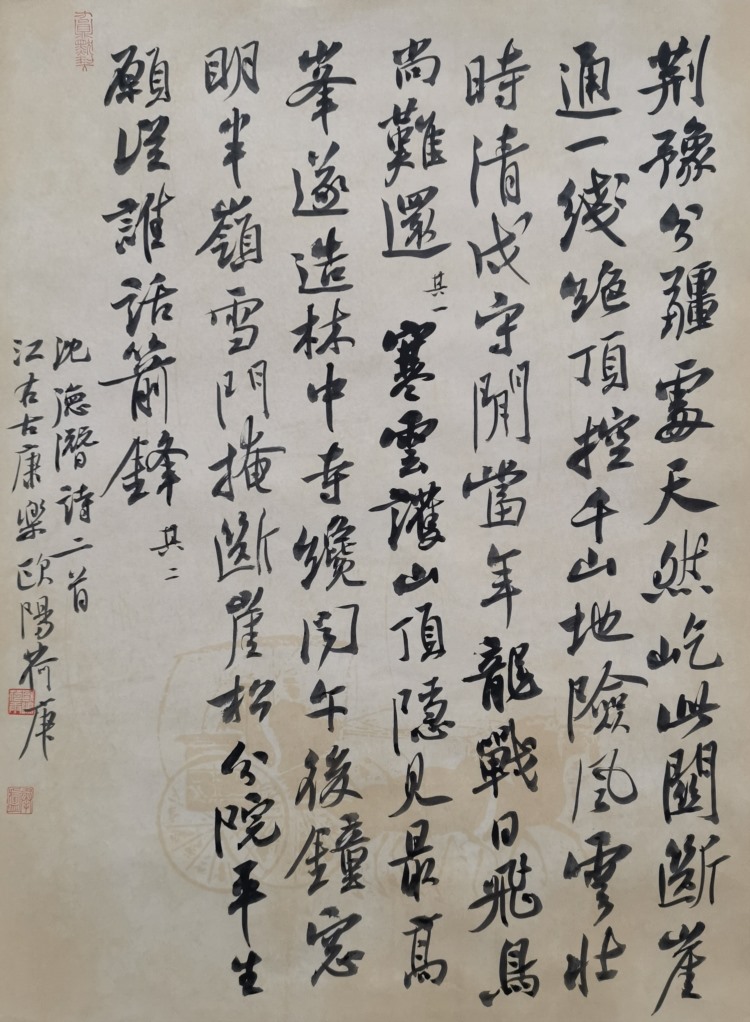 荆豫分疆處天然屹此關斷崖
通一綫絶頂控千山地險風雲壯
時清戍守閒當年龍戰日飛鳥
尚難還其一寒雲護山頂隱見最高
峯遂造林中寺纔聞午後鐘窓
明半嶺雪門掩斷崖松分院平生
願從誰話箭鋒其二
沈德潛詩二首
江右古康樂歐陽荷庚